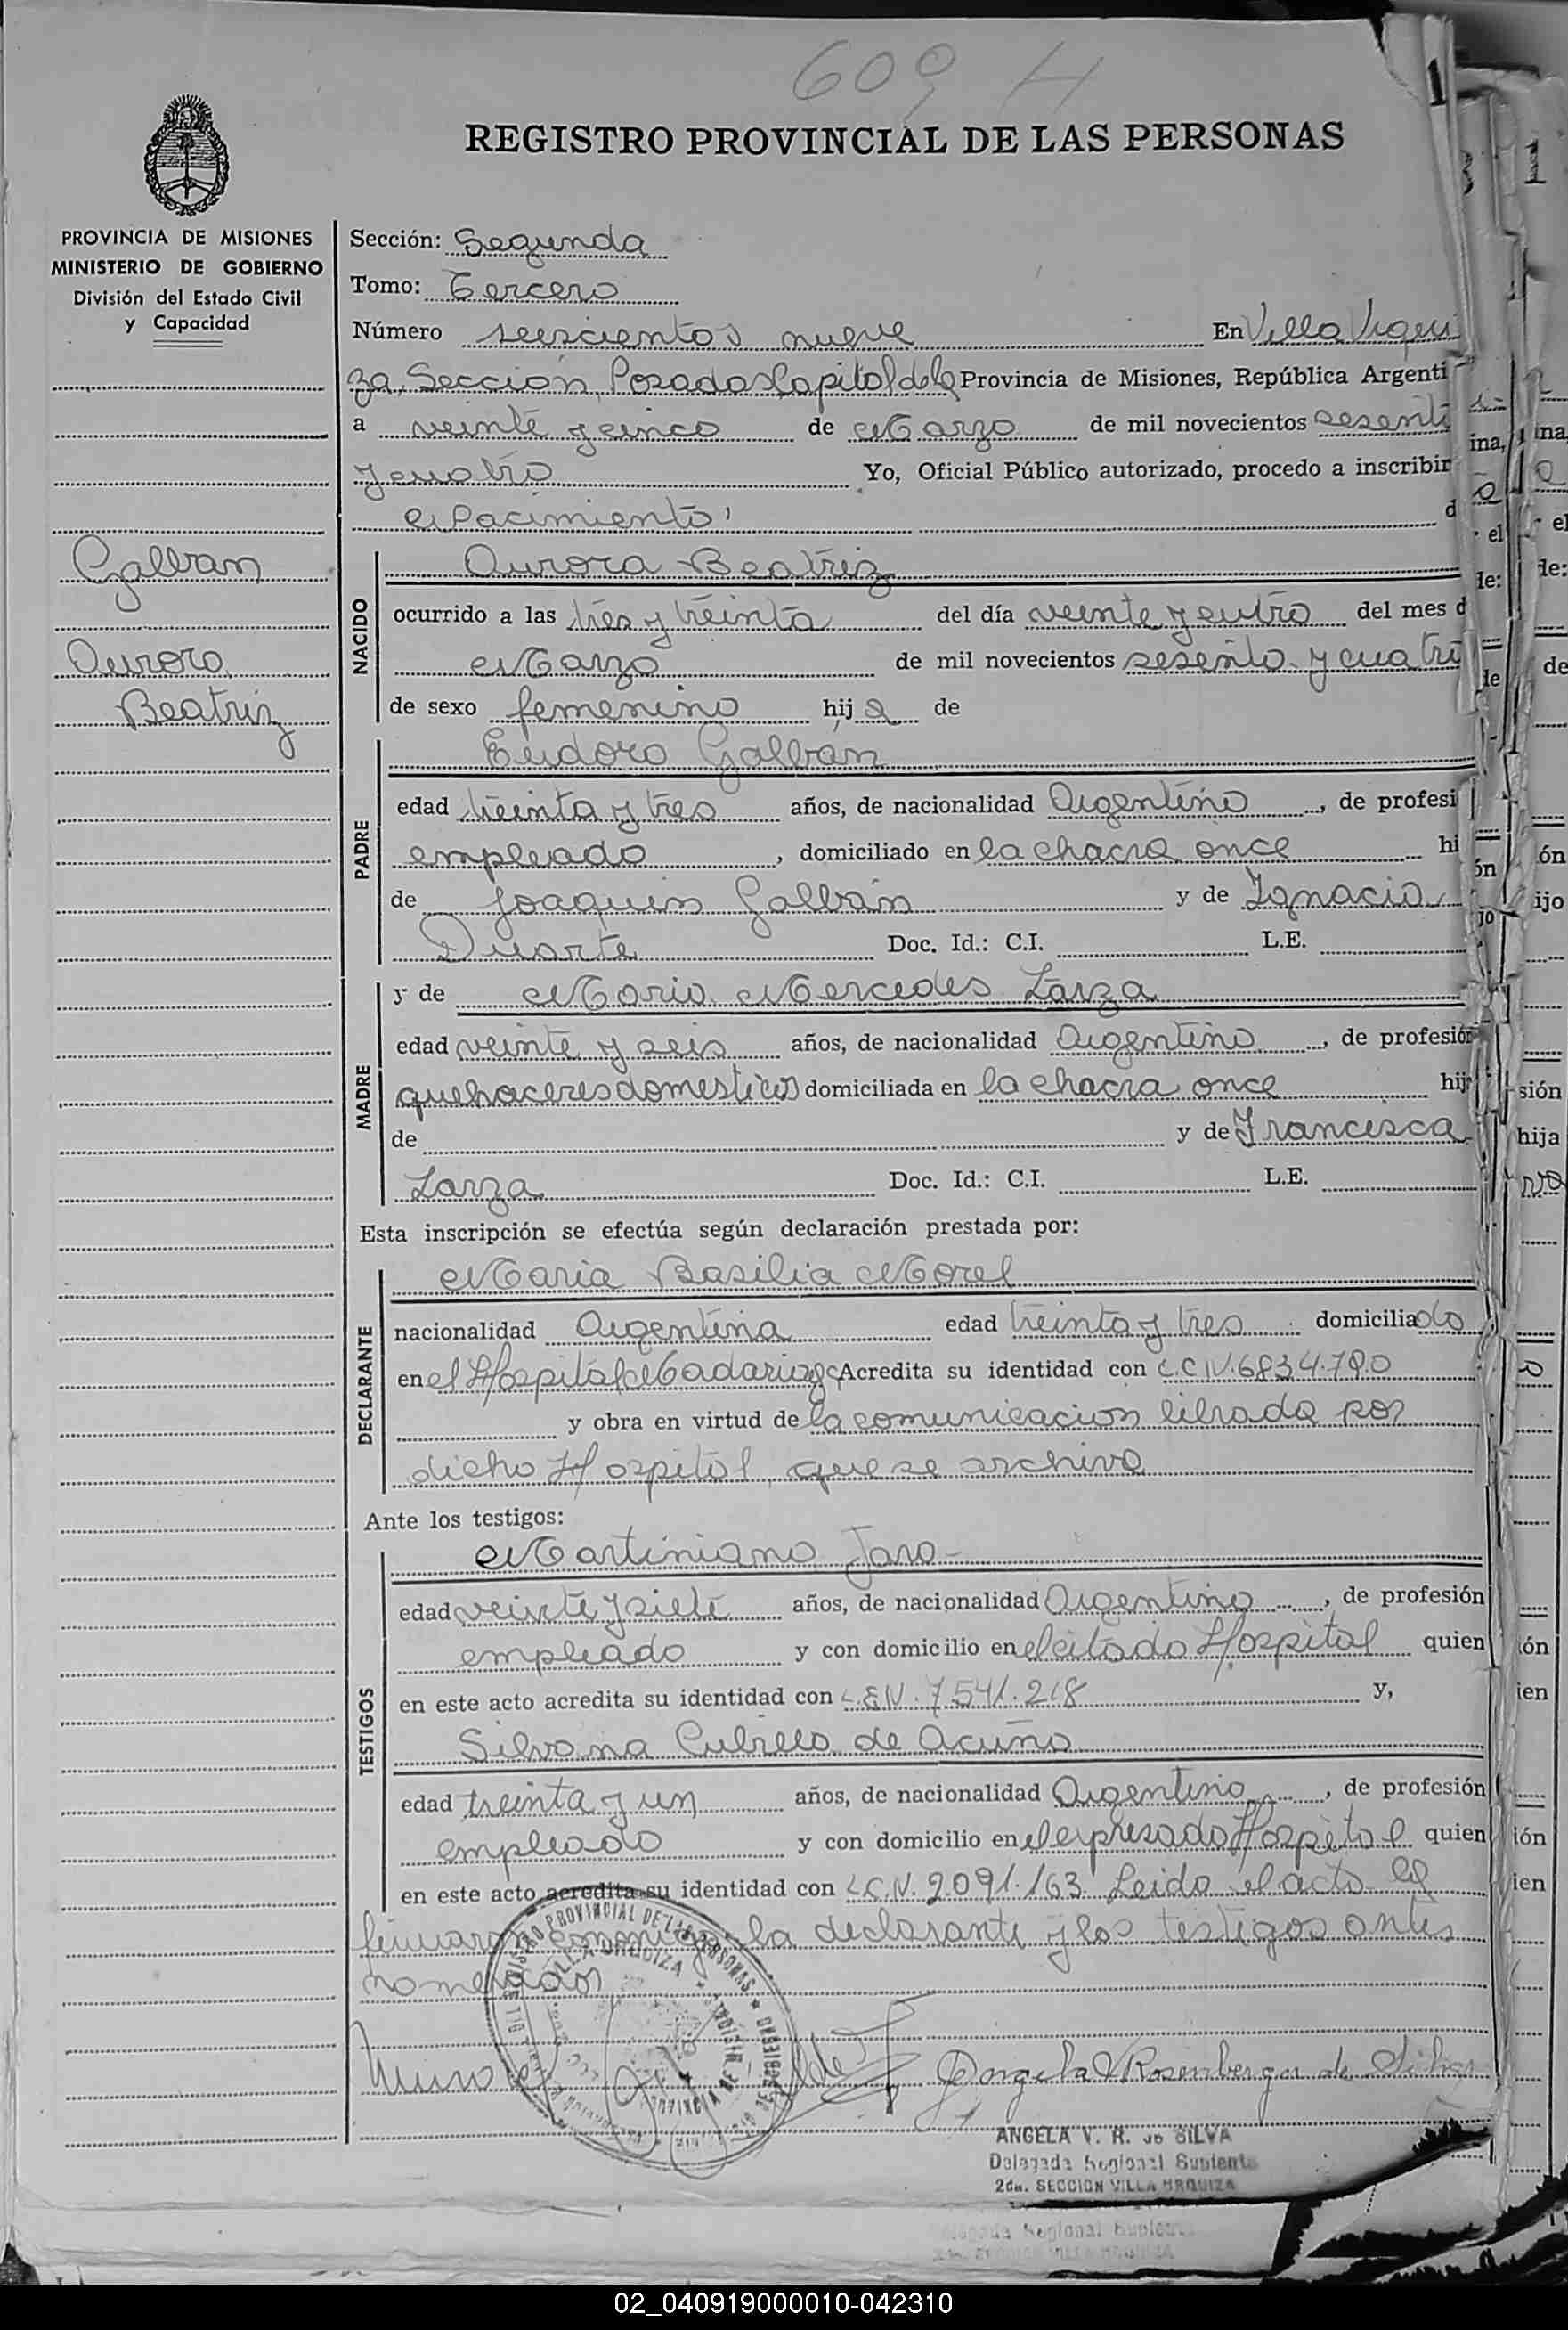 609 H
1
REGISTRO PROVINCIAL DE LAS PERSONAS
PROVINCIA DE MISIONES
MINISTERIO DE GOBIERNO
División del Estado Civil
y Capacidad
Galban
Aurora
Beatriz
Sección: Segunda
Tomo: Tercero
Número seiscientos nueve En Villa Urqui
za, Sección, Posadas Capital de la Provincia de Misiones, República Argenti
a veinte y cinco de Marzo de mil novecientos sesenta
y cuatro Yo, Oficial Público autorizado, procedo a inscribir
el Nacimiento d
NACIDO
Aurora Beatriz
ocurrido a las tres y treinta del día veinte y cuatro del mes d
Marzo de mil novecientos sesenta y cuatro
de sexo femenino hija de
PADRE
Eudoro Galbán
edad treinta y tres años, de nacionalidad Argentino, de profesi
empleado, domiciliado en la chacra once hi
de Joaquin Galbán y de Ignacia
Duarte Doc. Id.: C.I. L.E.
MADRE
y de Maria Mercedes Zarza
edad veinte y seis años, de nacionalidad Argentina, de profesión
quehaceres domesticos domiciliada en la chacra once hij
de y de Francisca
Zarza Doc. Id.: C.I. L.E.
Esta inscripción se efectúa según declaración prestada por:
DECLARANTE
Maria Basilia Morel
nacionalidad Argentina edad treinta y tres domiciliado
en el Hospital Madariaga Acredita su identidad con L.C.N. 6834.790
y obra en virtud de la comunicacion librada por
dicho Hospital que se archiva
Ante los testigos:
TESTIGOS
Martiniano Jara
edad veinte y siete años, de nacionalidad Argentino, de profesión
empleado y con domicilio en el citado Hospital quien
en este acto acredita su identidad con L.E.N. 7541.218 y,
Silvana de Acuña
edad treinta y un años, de nacionalidad Argentina, de profesión
empleada y con domicilio en el expresado Hospital quien
en este acto acredita su identidad con L.C.N. 2091.163 Leida el acta la
firmaron conmigo la declarante y los testigos antes
nomerados
REGISTRO PROVINCIAL DE LAS PERSONAS
VILLA URQUIZA
PROVINCIA DE MISIONES
Angela V Rosenberger de Silva
ANGELA V. R. de SILVA
Delegada Regional Suplente
2da. SECCION VILLA URQUIZA
02_040919000010-042310